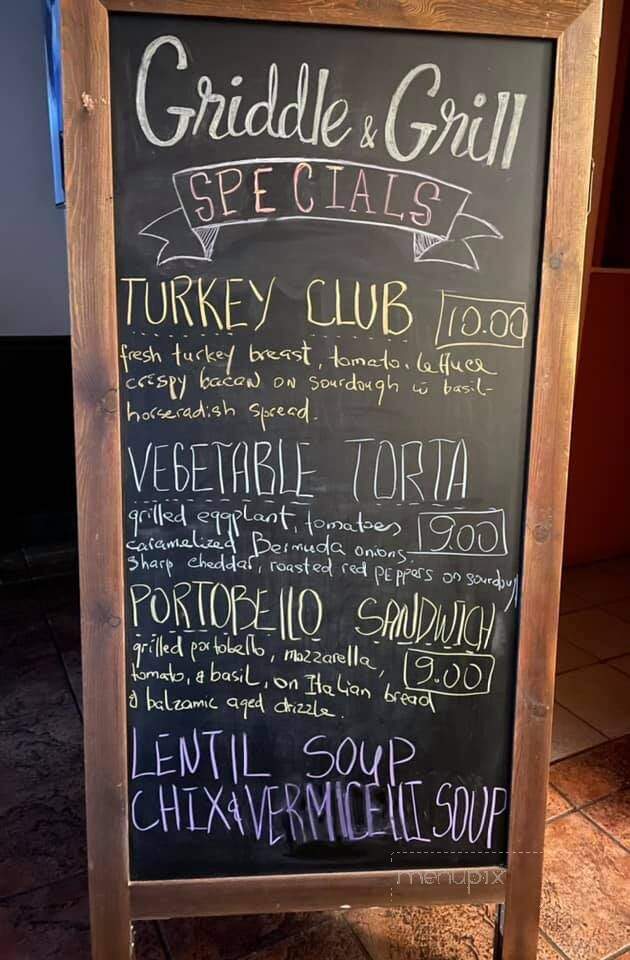 Griddle & Grill
SPECIALS
TURKEY CLUB 10.00
fresh turkey breast, tomato, lettuce
crispy bacon on sourdough w basil-
horseradish spread.
VEGETABLE TORTA
grilled eggplant, tomatoes 9.00
caramelized Bermuda onions.
Sharp cheddar, roasted red peppers on sourdough
PORTOBELLO SANDWICH
grilled portobello, mozzarella, 9.00
tomato, & basil, on Italian bread
& balzamic aged drizzle.
LENTIL SOUP
CHIX & VERMICELLI SOUP
menupix